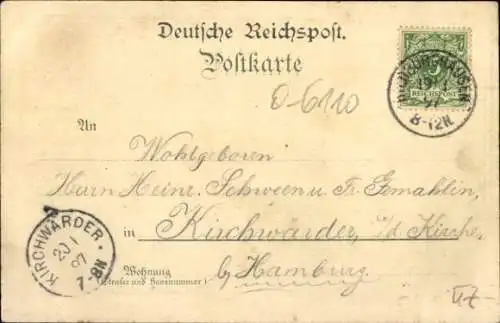 Deutsche Reichspost.
Postkarte
5
REICHSPOST
HILDBURGHAUSEN
97
8-12N.
O-6110
An
Wohlgeboren
Herrn Heinr. Schween u. Fr. Gemahlin,
in Kirchwärder, a/d Kirche,
KIRCHWÄRDER.
20 1
97
7-8N
Wohnung
(Straße und Hausnummer)
b/ Hamburg.